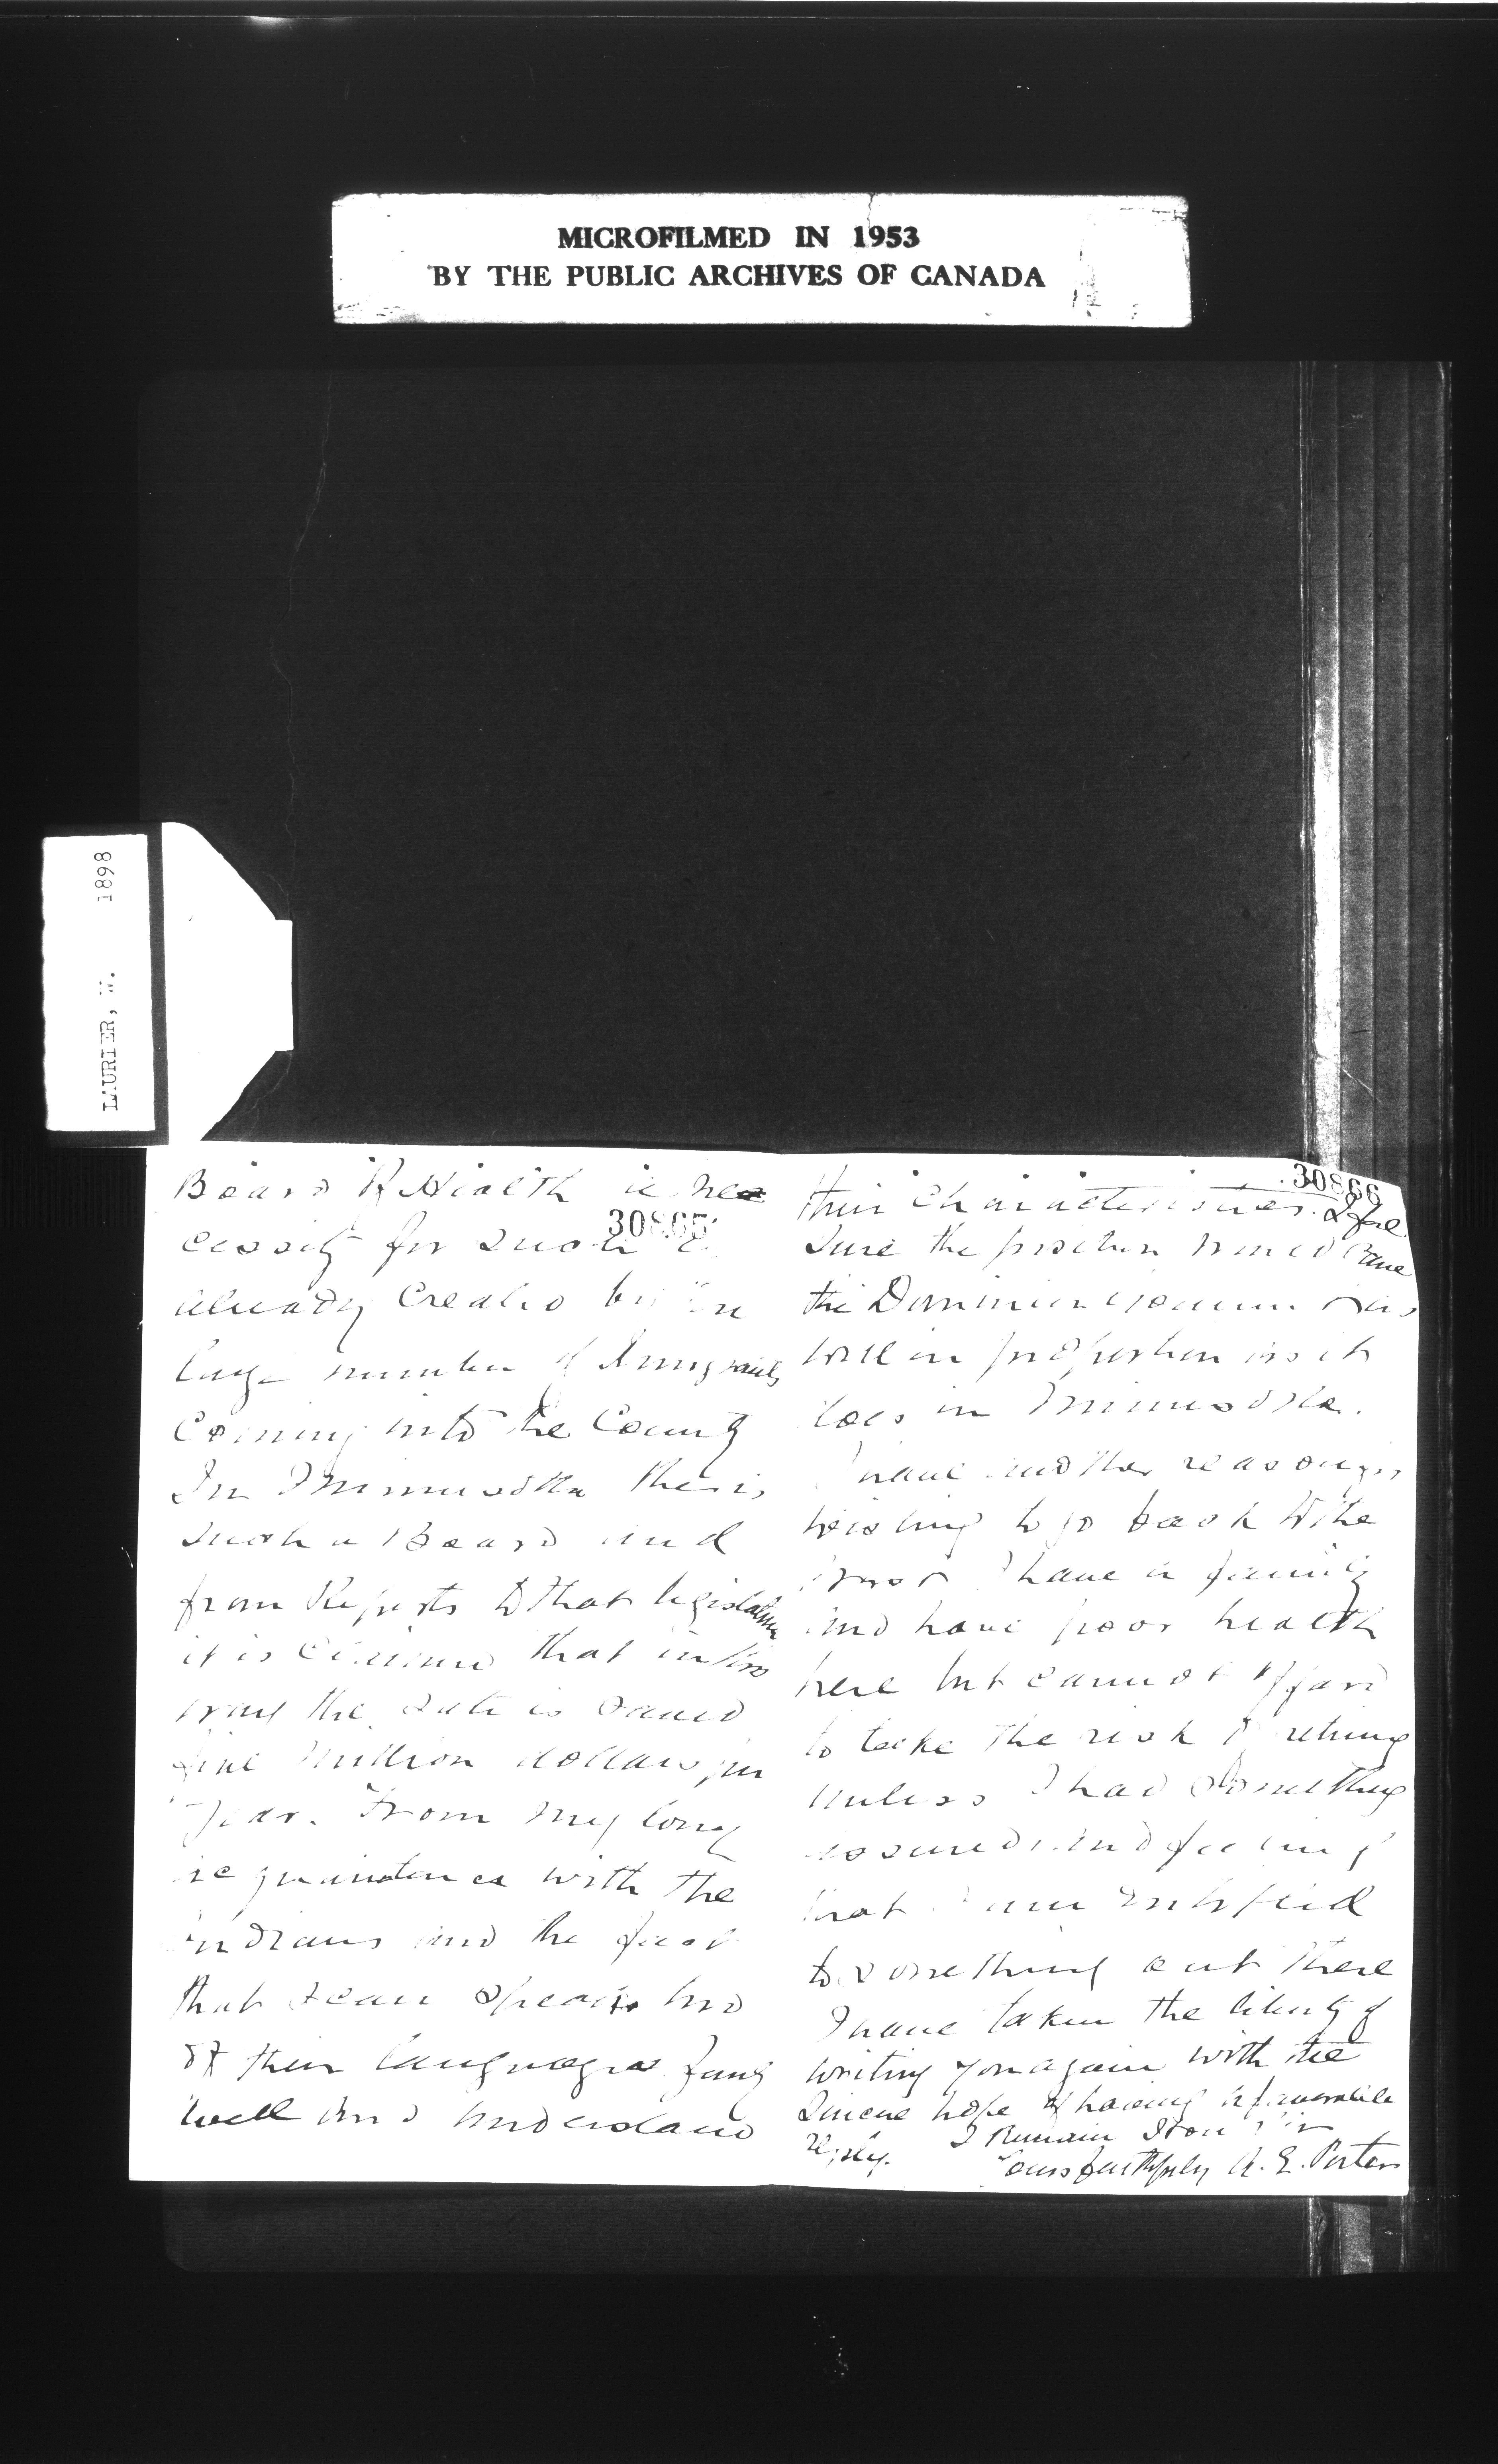 MICROFILMED IN 1953
BY THE PUBLIC ARCHIVES OF CANADA
LAURIER, W. 1898
Board of Health a nec
30865
cessity for such is
already created by the
large number of Immigrants
Coming into the Country
In Minnesota there is
such a Board and
from Reports to that legislature
it is claimed that in this
way the State is saved
five million dollars per
year. From my long
acquaintance with the
Indians and the fact
that I can speak two
of their languages fairly
well and understand
30866
their characteristics. I feel
sure the position would save
the Dominion
well in proportion as it
does in Minnesota.
I have another reason for
wishing to go back to the
I have a family
and have poor health
here but cannot afford
to take the risk of
unless I had something
assured and feeling
that I am entitled
to something out there
I have taken the liberty of
writing you again with the
Sincere hope of having a favorable
reply. I Remain Hon Sir
Yours faithfully A. E. Porter